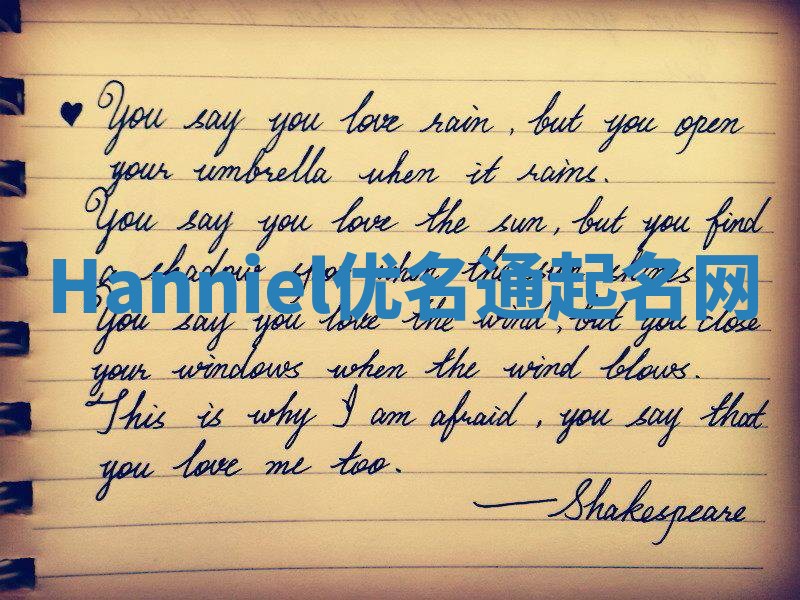 ♥ You say you love rain, but you open
your umbrella when it rains.
You say you love the sun, but you find
a shadow spot when the sun shines
Hanniel优名通起名网
You say you love the wind, but you close
your windows when the wind blows.
This is why I am afraid, you say that
you love me too.
—Shakespeare